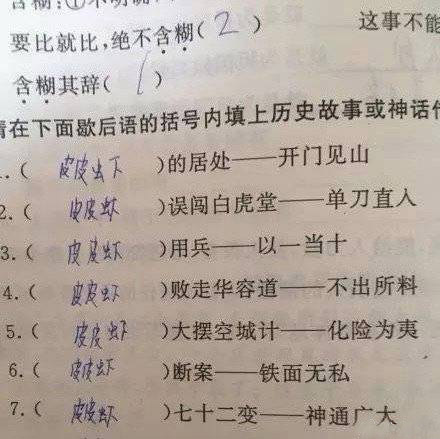 含糊:①不明确
要比就比,绝不含糊( 2 )
这事不能
含糊其辞( 1 )
请在下面歇后语的括号内填上历史故事或神话
1.( 皮皮虫下 )的居处——开门见山
2.( 皮皮虾 )误闯白虎堂——单刀直人
3.( 皮皮虾 )用兵——以一当十
4.( 皮皮虾 )败走华容道——不出所料
5.( 皮皮虾 )大摆空城计——化险为夷
6.( 皮皮虾 )断案——铁面无私
7.( 皮皮虾 )七十二变——神通广大